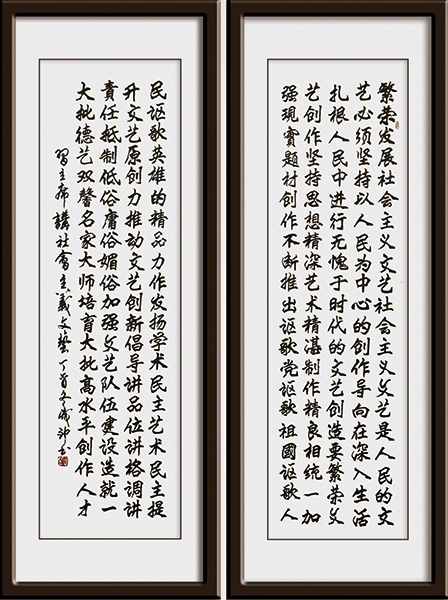 繁荣发展社会主义文艺社会主义文艺是人民的文
艺必须坚持以人民为中心的创作导向在深入生活
扎根人民中进行无愧于时代的文艺创造要繁荣文
艺创作坚持思想精深艺术精湛制作精良相统一加
强現實題材创作不断推出讴歌党讴歌祖國讴歌人
民讴歌英雄的精品力作发扬学术民主艺术民主提
升文艺原创力推动文艺创新倡导讲品位讲格调讲
責任抵制低俗庸俗媚俗加强文艺队伍建设造就一
大批德艺双馨名家大师培育大批高水平创作人才
習主席講社會主義文藝丁酉冬